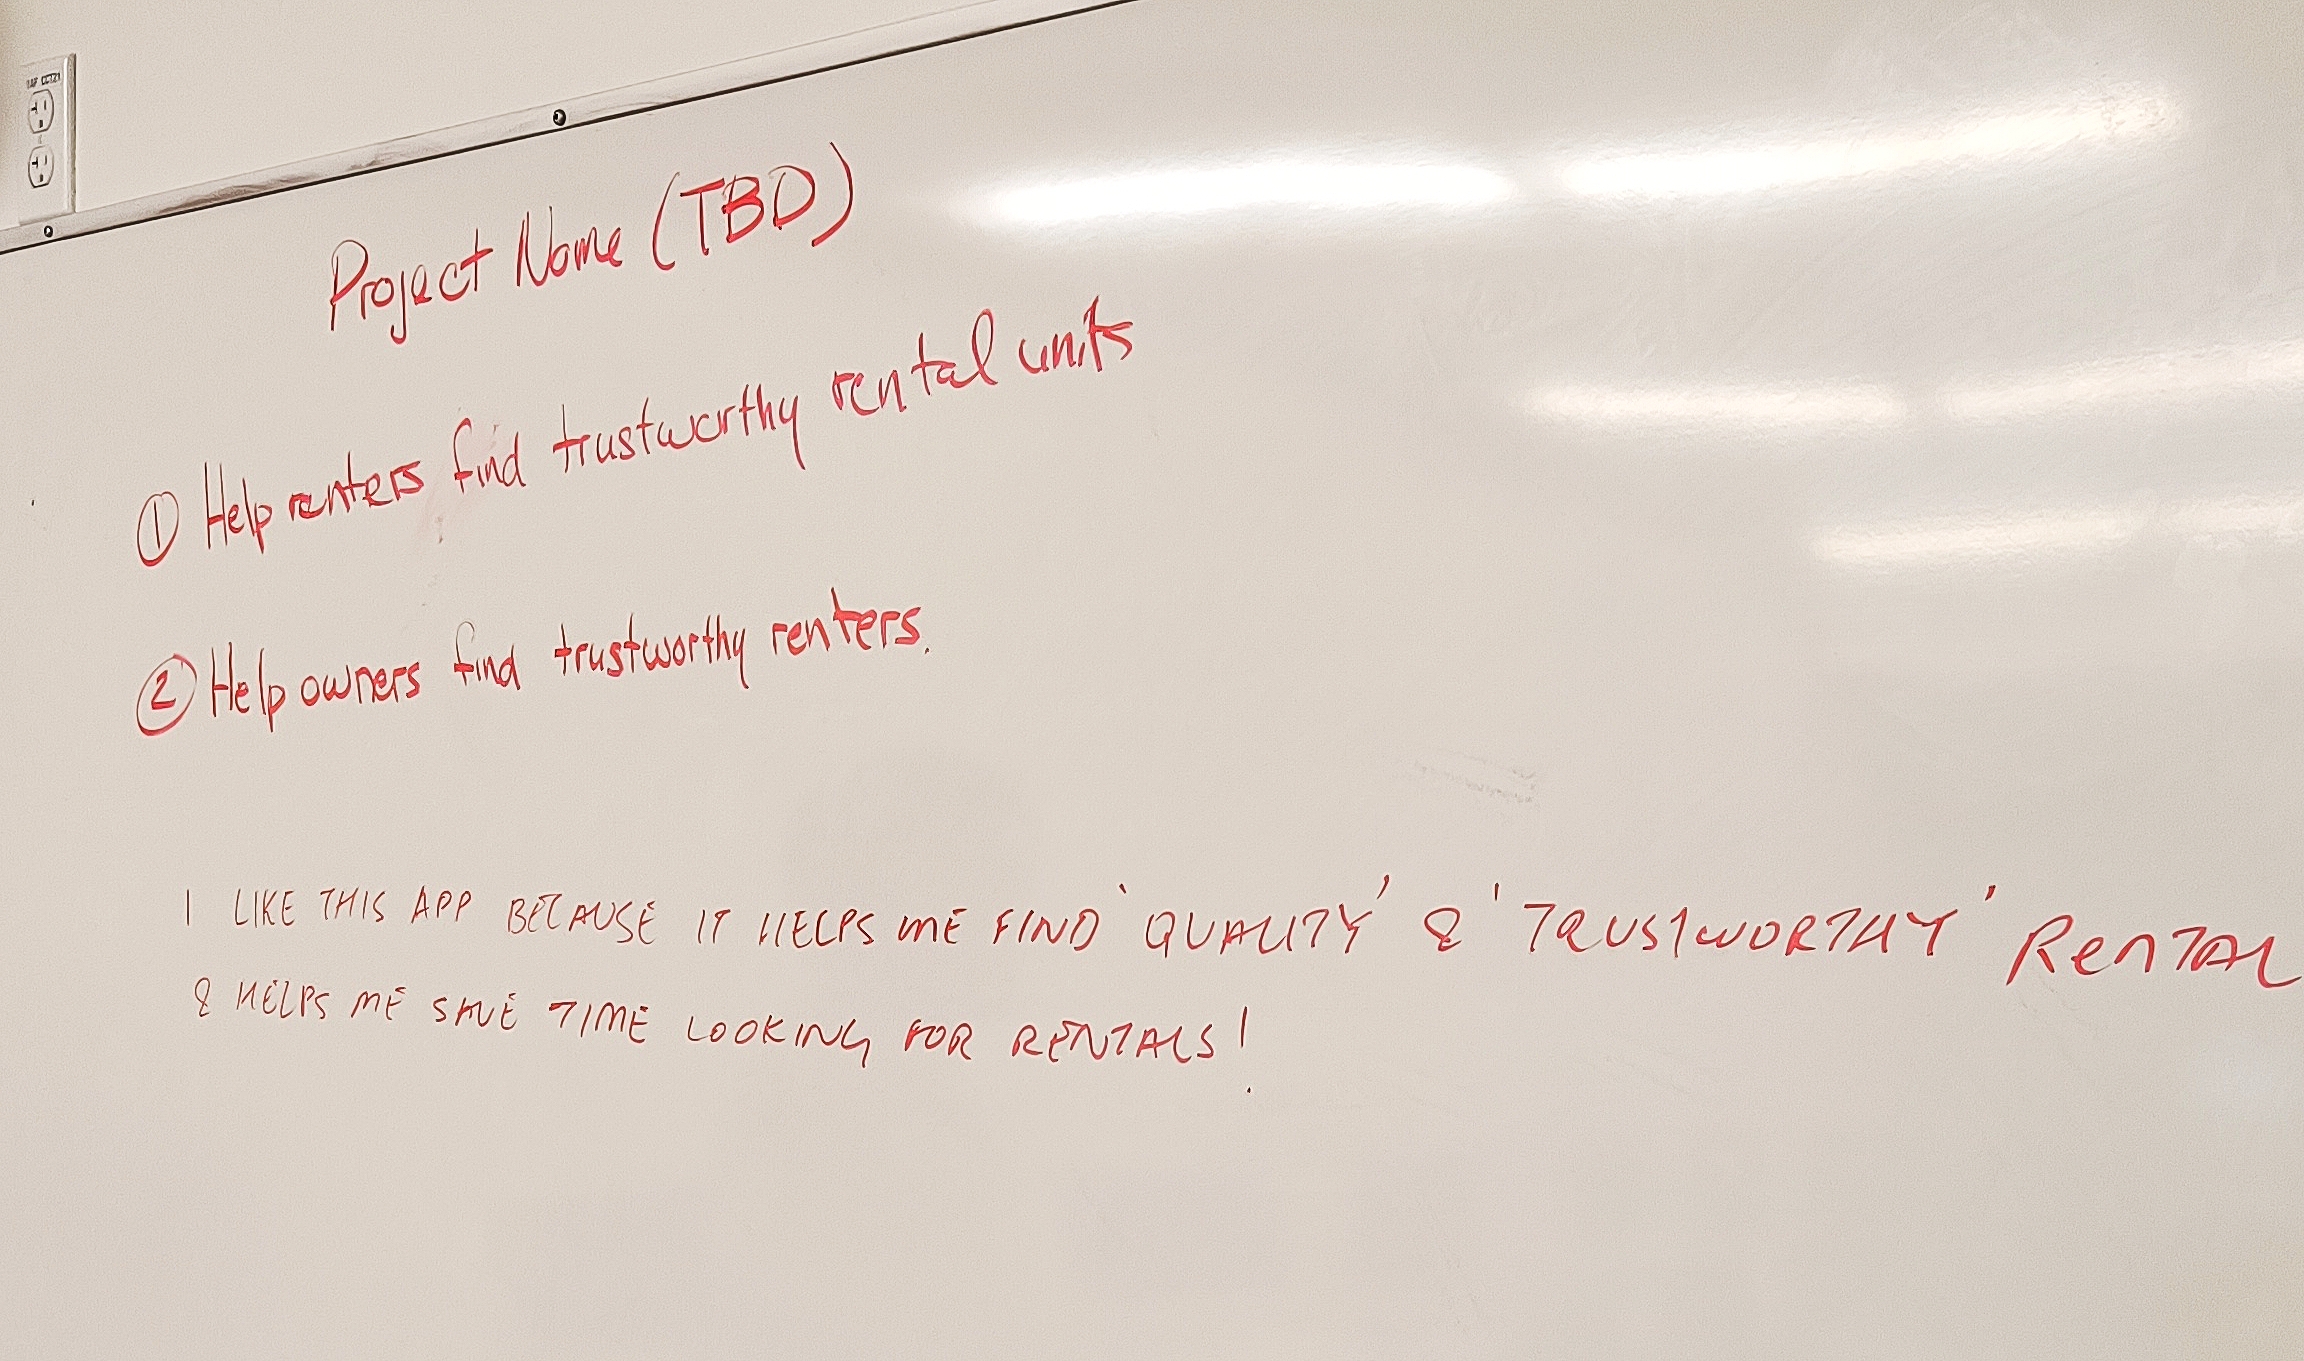 Project Name (TBD)
① Help renters find trustworthy rental units
② Help owners find trustworthy renters.
I LIKE THIS APP BECAUSE IT HELPS ME FIND 'QUALITY' & 'TRUSTWORTHY' RENTAL
& HELPS ME SAVE TIME LOOKING FOR RENTALS!